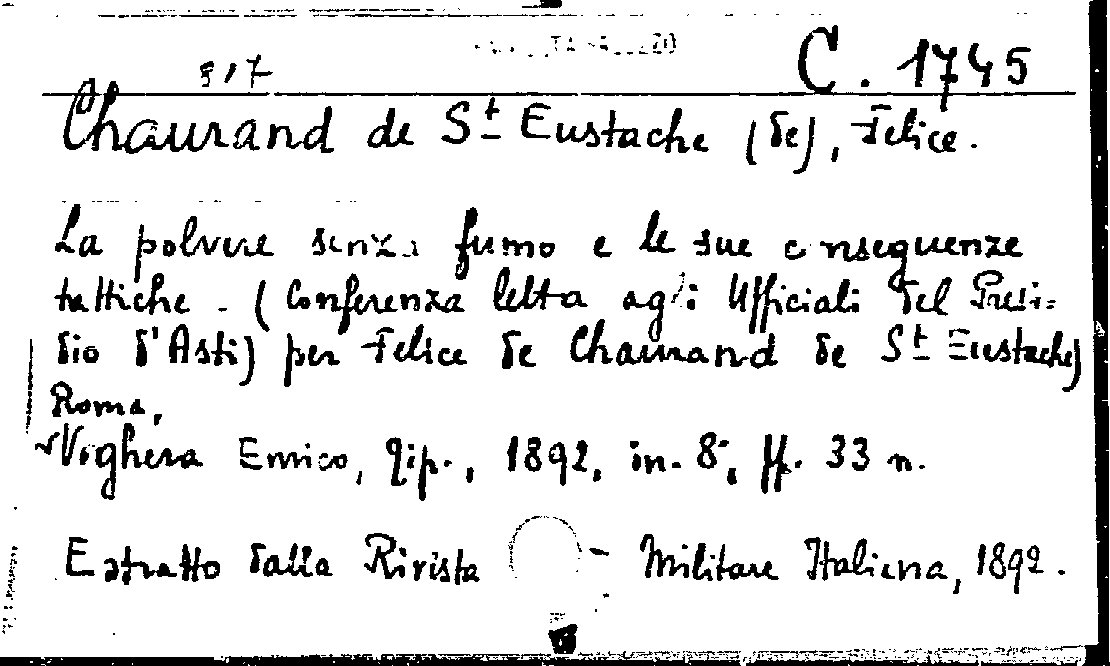 C. 1745
Chaurand de St Eustache (de), Felice.
La polvere senza fumo e le sue conseguenze
tattiche - (Conferenza letta agli Ufficiali del Presi=
dio d'Asti) per Felice de Chaurand de St Eustache)
Roma,
Voghera Enrico, tip., 1892, in-8°, ff. 33 n.
Estratto dalla Rivista - Militare Italiana, 1892.